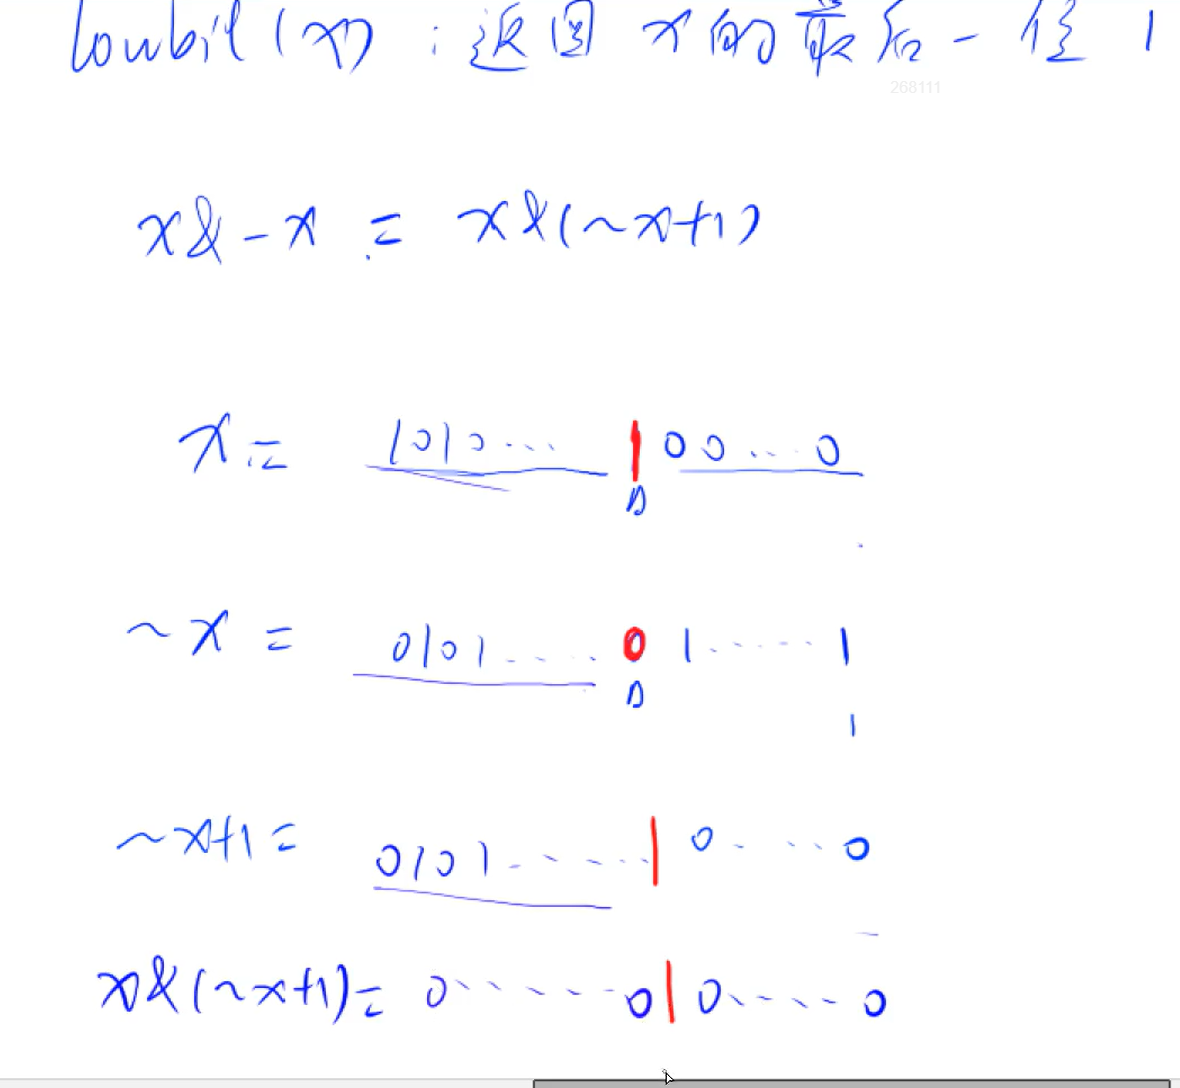 lowbit(x) : 返回 x 的最后一位 1
268111
x&-x = x&(~x+1)
x = 1010... 1 00...0
~x = 0101.... 0 1......1
1
~x+1 = 0101...... 1 0....0
x&(~x+1) = 0......0 1 0.....0